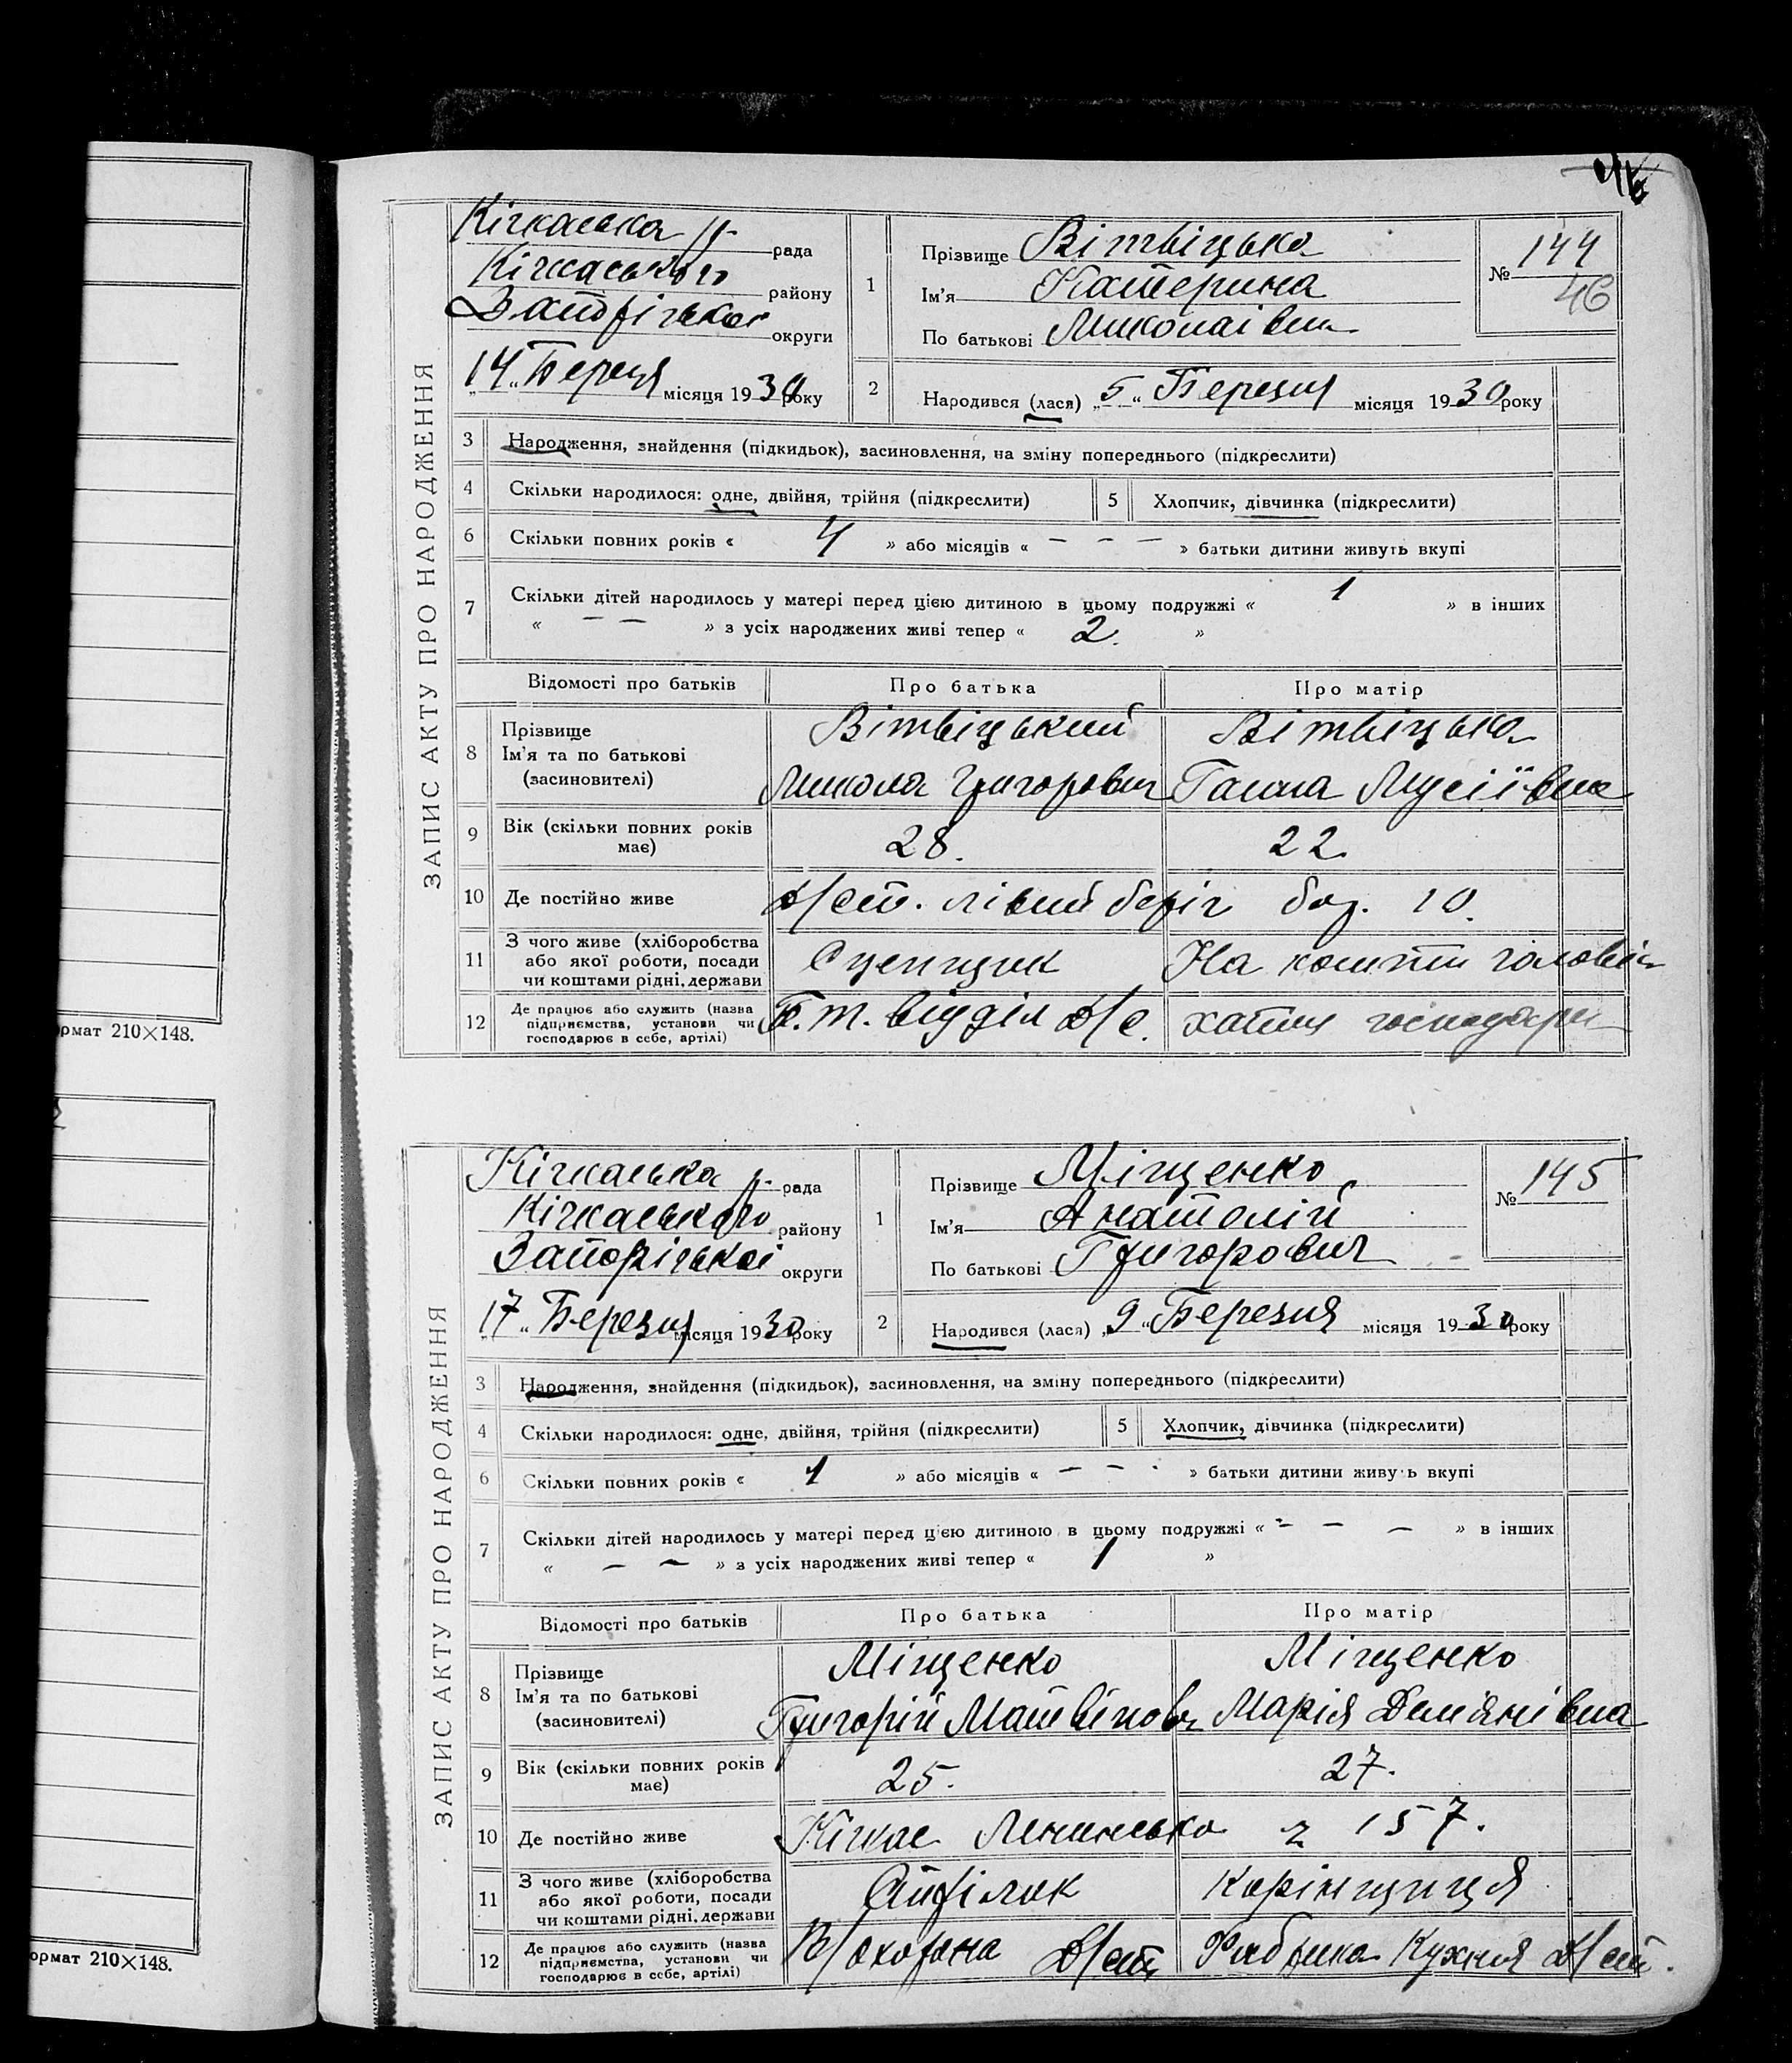 Кічкаська р. рада
Кічкаського району
Запорізької округи
„14“ Березня місяця 1930 року
1
Прізвище Вітвіцька
Ім’я Катерина
По батькові Миколаівна
№ 144
46
2
Народився (лася) „5“ Березня місяця 1930 року
ЗАПИС АКТУ ПРО НАРОДЖЕННЯ
3 Народження, знайдення (підкидьок), засиновлення, на зміну попереднього (підкреслити)
4 Скільки народилося: одне, двійня, трійня (підкреслити) 5 Хлопчик, дівчинка (підкреслити)
6 Скільки повних років « 4 » або місяців « — — — » батьки дитини живуть вкупі
7 Скільки дітей народилось у матері перед цією дитиною в цьому подружжі « 1 » в інших
« — — » з усіх народжених живі тепер « 2. »
Відомості про батьків Про батька Про матір
8 Прізвище Вітвіцький Вітвіцька
Ім’я та по батькові Микола Григорович Ганна Мусіївна
(засиновителі)
9 Вік (скільки повних років має) 28. 22.
10 Де постійно живе Д/ст. лівий беріг бар. 10.
11 З чого живе (хліборобства
або якої роботи, посади
чи коштами рідні, держави Сцепщик На кошти чоловіка
12 Де працює або служить (назва
підприємства, установи чи
господарює в себе, артілі) відділ Д/с. хатня господарк
рмат 210×148.
Кічкаська р. рада
Кічкаського району
Запорізької округи
„17“ Березня місяця 1930 року
1
Прізвище Міщенко
Ім’я Анатолій
По батькові Григорович
№ 145
2
Народився (лася) „9“ Березня місяця 1930 року
ЗАПИС АКТУ ПРО НАРОДЖЕННЯ
3 Народження, знайдення (підкидьок), засиновлення, на зміну попереднього (підкреслити)
4 Скільки народилося: одне, двійня, трійня (підкреслити) 5 Хлопчик, дівчинка (підкреслити)
6 Скільки повних років « 1 » або місяців « — — - » батьки дитини живуть вкупі
7 Скільки дітей народилось у матері перед цією дитиною в цьому подружжі « — — — » в інших
« — — » з усіх народжених живі тепер « 1 »
Відомості про батьків Про батька Про матір
8 Прізвище Міщенко Міщенко
Ім’я та по батькові Григорій Марія Демʼянівна
(засиновителі)
9 Вік (скільки повних років має) 25. 27.
10 Де постійно живе Кічкас Ленинська 157.
11 З чого живе (хліборобства
або якої роботи, посади
чи коштами рідні, держави Стрілок Корінщиця
12 Де працює або служить (назва
підприємства, установи чи
господарює в себе, артілі) В/охорона Д/ст. Фабрика Кухня Д/ст.
ормат 210×148.